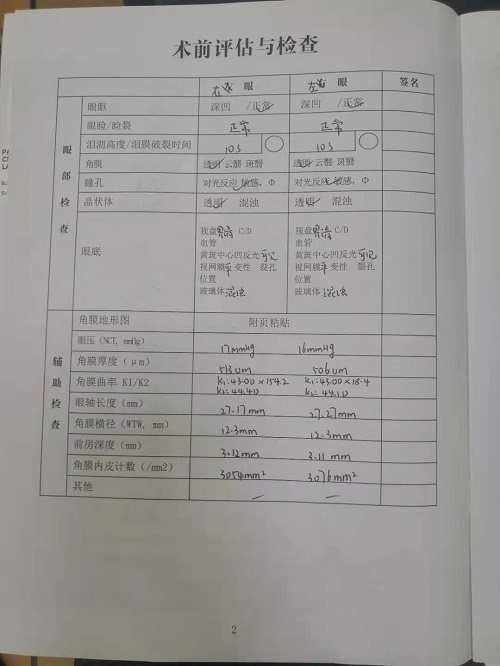 术前评估与检查
右 眼 左 眼 签名
眼部检查
眼眶 深凹 /正常 深凹 /正常
眼睑/睑裂 正常 正常
泪湖高度/泪膜破裂时间 10s 10s
角膜 透明 云翳 斑翳 透明 云翳 斑翳
瞳孔 对光反应 敏感,Φ 对光反应 敏感,Φ
晶状体 透明 混浊 透明 混浊
眼底
视盘界清 C/D 视盘界清 C/D
血管 血管
黄斑中心凹反光可见 黄斑中心凹反光可见
视网膜平 变性 裂孔 视网膜平 变性 裂孔
位置 位置
玻璃体 混浊 玻璃体 混浊
辅助检查
角膜地形图 附页粘贴
眼压(NCT, mmHg) 17mmHg 16mmHg
角膜厚度(μm) 513um 506um
角膜曲率 K1/K2 K1:43.00×154.2 K1:43.00×18.4
K2:44.40 K2:44.10
眼轴长度(mm) 27.17mm 27.27mm
角膜横径(WTW, mm) 12.3mm 12.3mm
前房深度(mm) 3.12mm 3.11mm
角膜内皮计数(/mm2) 3054mm² 3076mm²
其他 — —
2